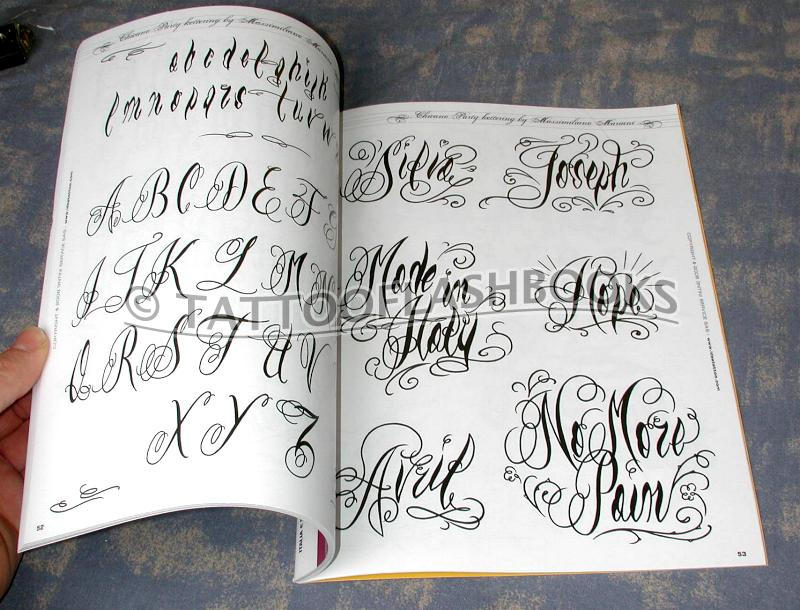 Chicano Party Lettering by Massimiliano
a b c d e f g h i j k
l m n o p q r s t u v w
A B C D E F
I J K L M N
Q R S T U V
X Y Z
52
Chicano Party Lettering by Massimiliano Mariani
Silvia
Joseph
Made in
Italy
Hope
Avril
No More
Pain
53
© TATTOOFLASHBOOKS
ITALIA